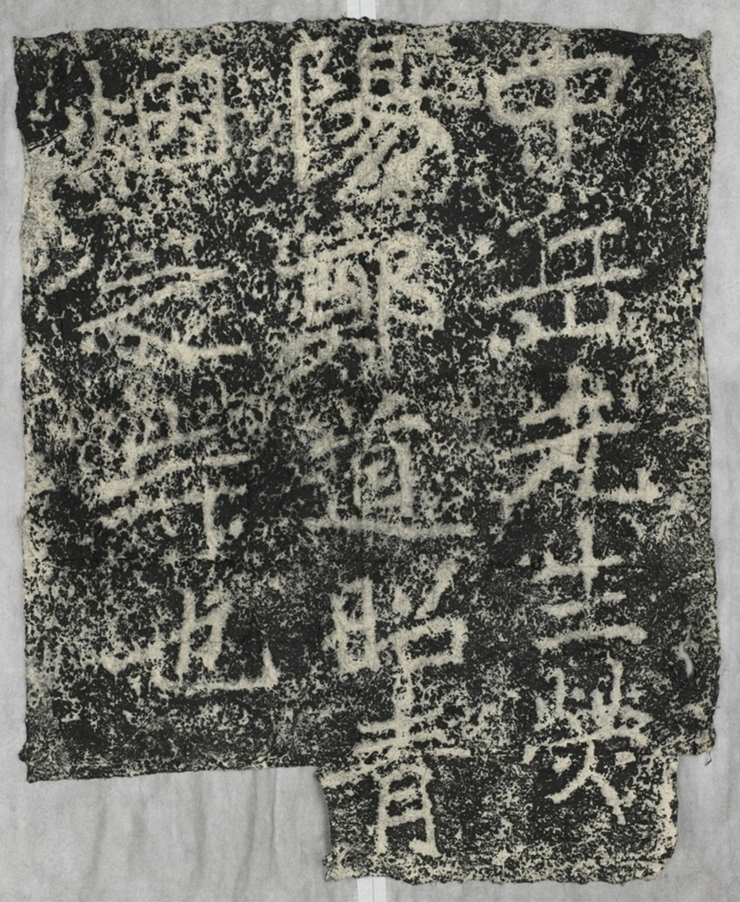 中岳先生熒
陽鄭道昭青
烟之寺也